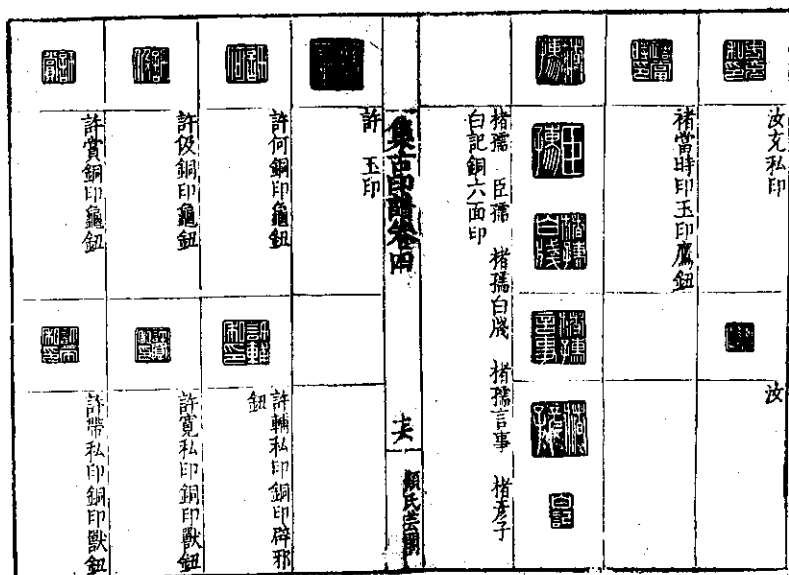 汝充私印
汝
褚當時印玉印鷹鈕
楮孺　臣孺　楮孺白牋　楮孺言事　楮彥子
白記銅六面印
集古印譜卷四
十六
顧氏芸閣
許　玉印
許何銅印龜鈕
許輔私印銅印辟邪
鈕
許伋銅印龜鈕
許寬私印銅印獸鈕
許賞銅印龜鈕
許帶私印銅印獸鈕